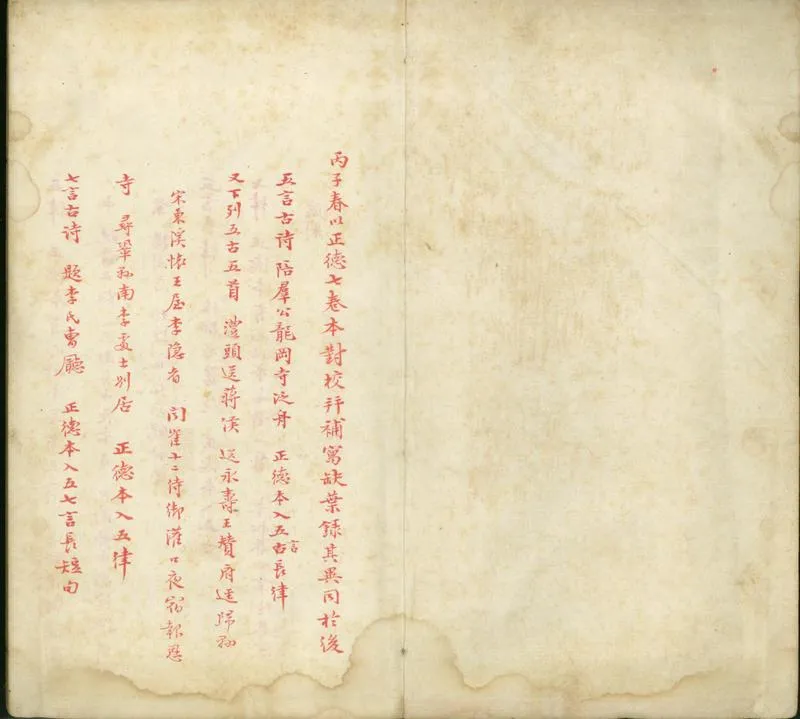 丙子春以正德七卷本對校并補寫缺葉錄其異同於後
五言古詩 陪羣公龍岡寺泛舟 正德本入五言古長律
又下列五古五首 澧頭送蔣侯 送永壽王贊府逕歸縣
宋東溪懷王屋李隱者 聞崔十二侍御灌口夜宿報恩
寺 尋鞏縣南李處士別居 正德本入五律
七言古詩 題李氏曹廳 正德本入五七言長短句